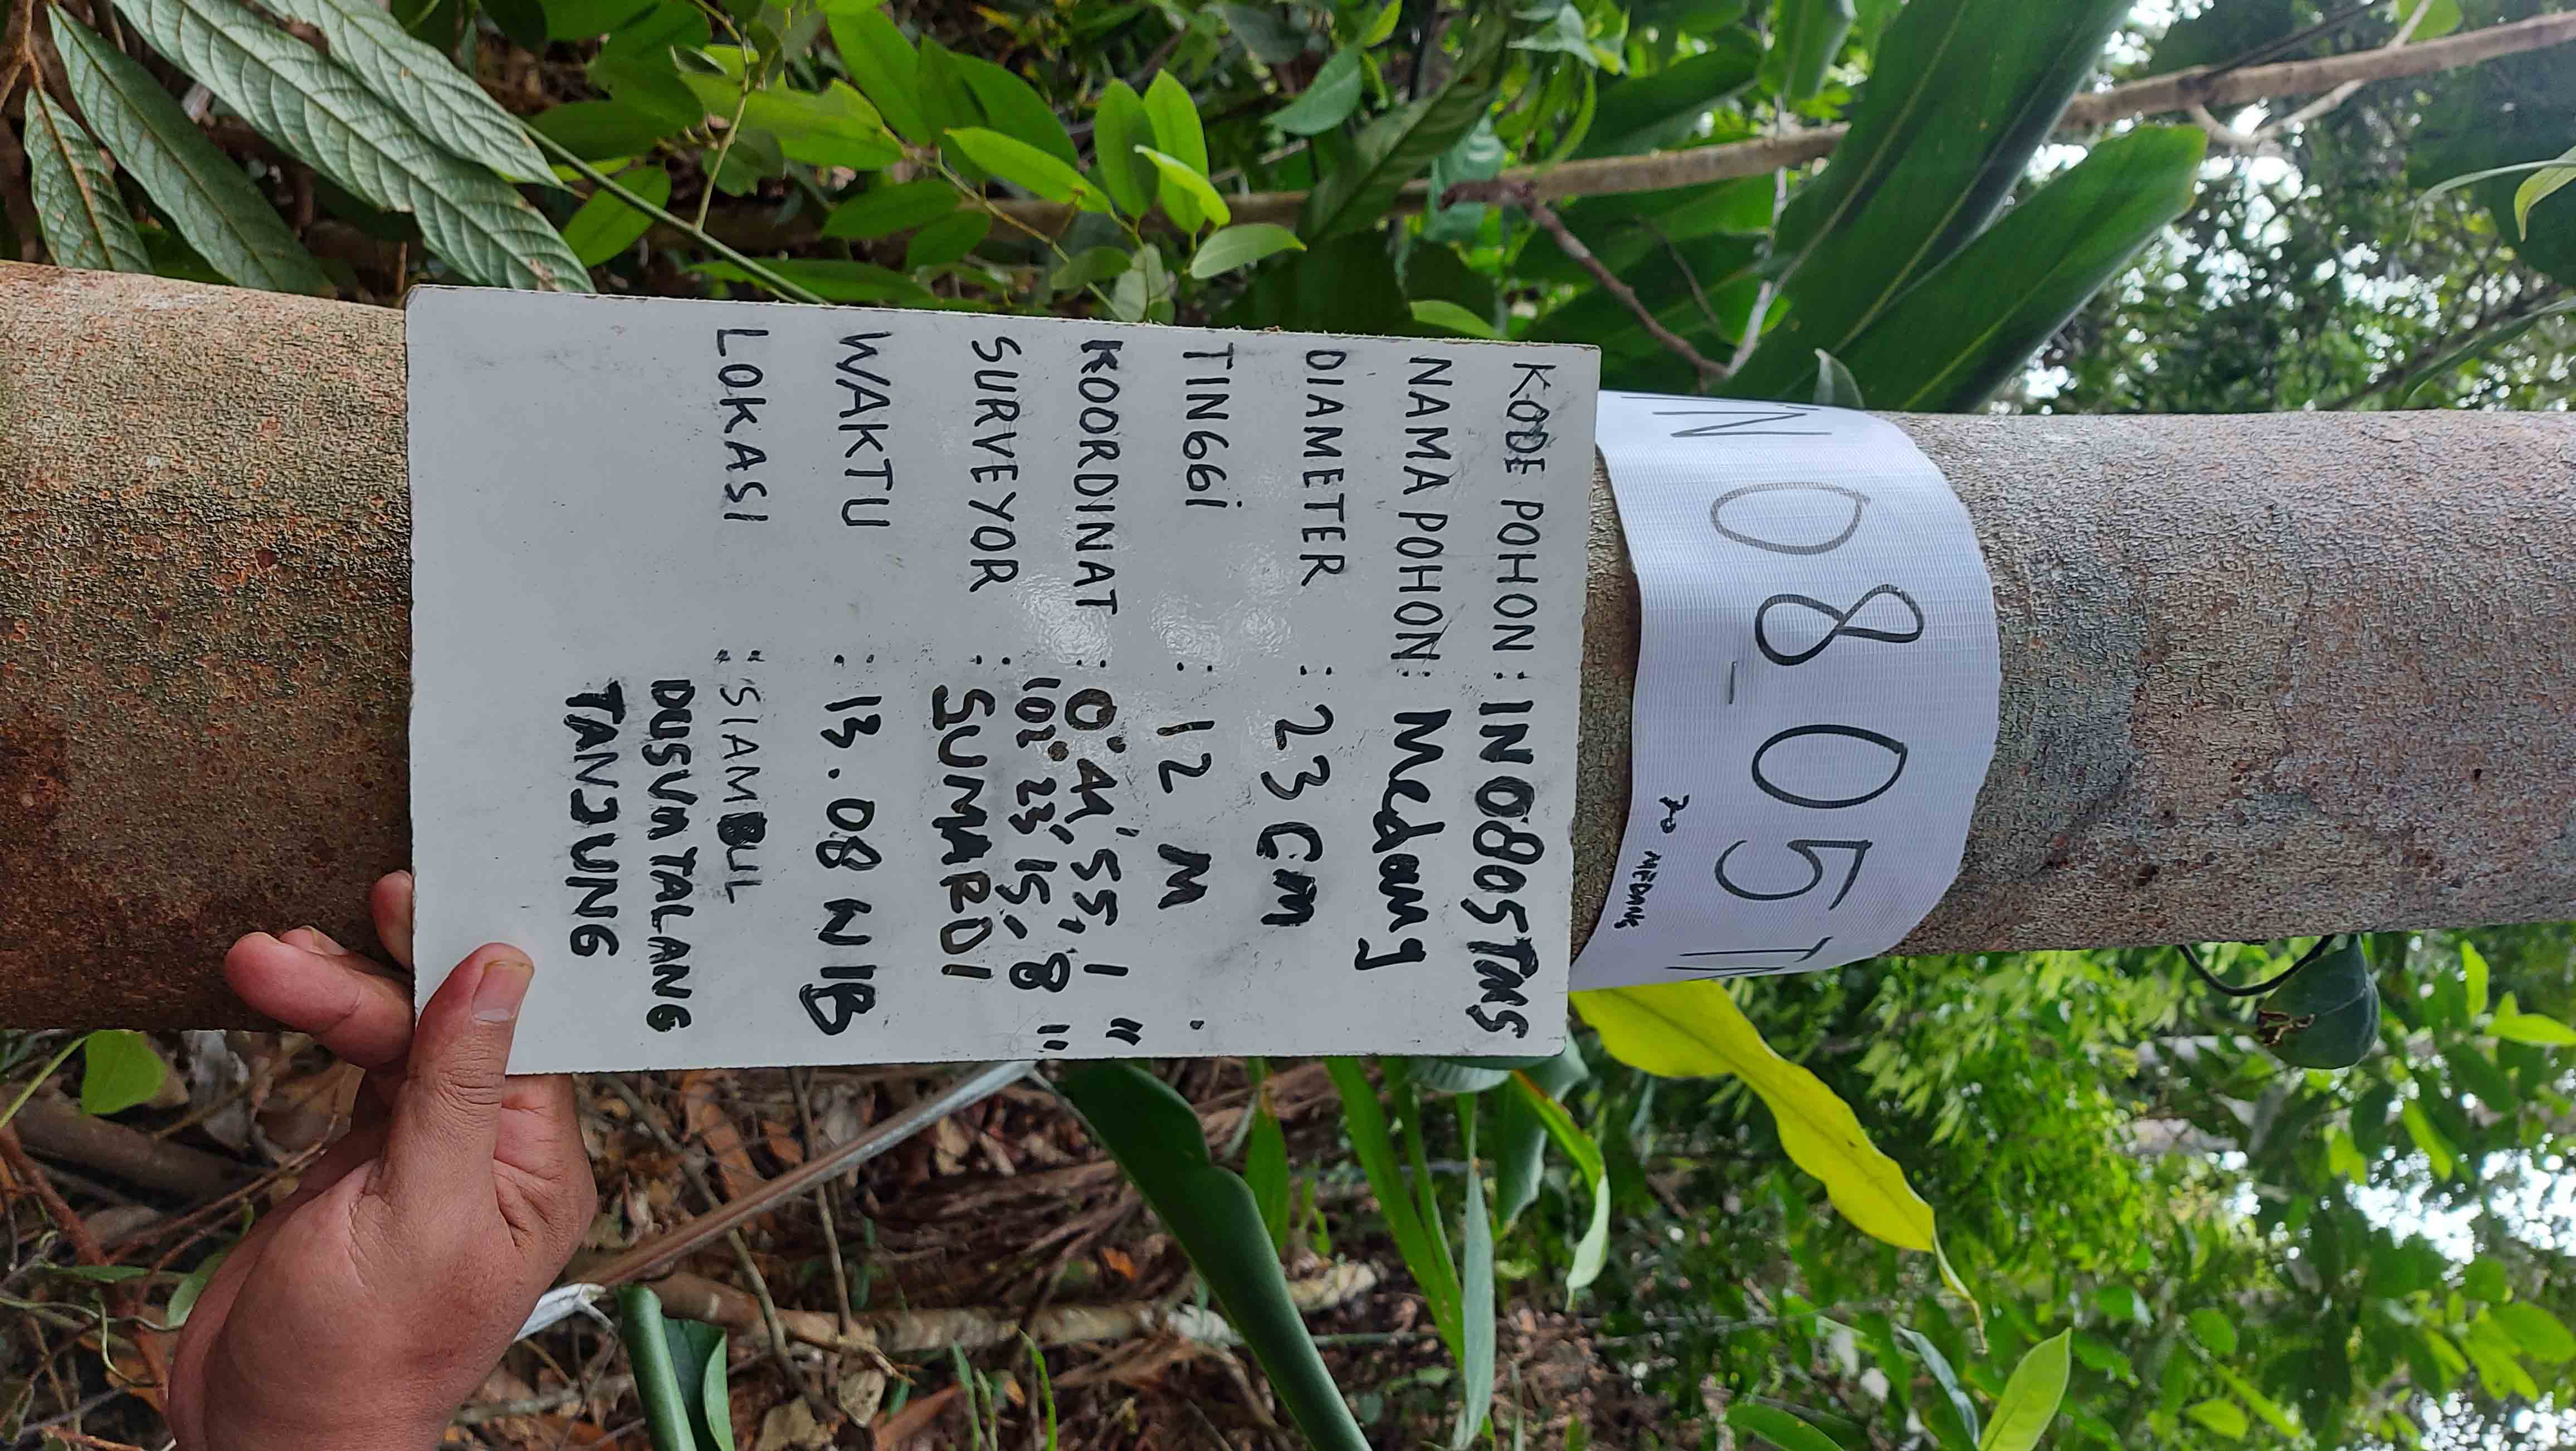 IN 08_05 TM
70 MEDANG
KODE POHON : IN0805TMS
NAMA POHON : Medang
DIAMETER : 23 CM
TINGGI : 12 M
KOORDINAT : 0° 44' 55, 1 "
102° 23' 15, 8 "
SURVEYOR : SUMARDI
WAKTU : 13.08 WIB
LOKASI : SIAMBUL
DUSUM TALANG
TANJUNG